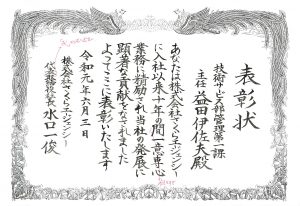 表彰状
技術サービス部管理第一課
主任 益田伊佐夫殿
あなたは株式会社さくらエージェンシー
に入社以来十年の間一意専心
業務に精励され当社の発展に
顕著な貢献をなされました
よってここに表彰いたします
令和元年六月三日
株式会社さくらエージェンシー
代表取締役社長 水口一俊